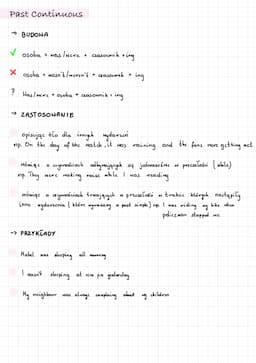 Past Continuous
→ BUDOWA
✓ osoba + was/were + czasownik + ing
✗ osoba + wasn't/weren't + czasownik + ing
? Was/were + osoba + czasownik + ing
→ ZASTOSOWANIE
opisując tło dla innych wydarzeń
np. On the day of the match, it was raining and the fans were getting wet
mówiąc o czynnościach odbywających się jednocześnie w przeszłości (while)
np. They were making noise while I was reading
mówiąc o czynnościach trwających w przeszłości w trakcie których nastąpiły
inne wydarzenia (które wyrażamy w past simple) np. I was riding my bike when
policeman stopped me
→ PRZYKŁADY
Mabel was sleeping all morning
I wasn't sleeping at nine pm yesterday
My neighbour was always complaining about my children